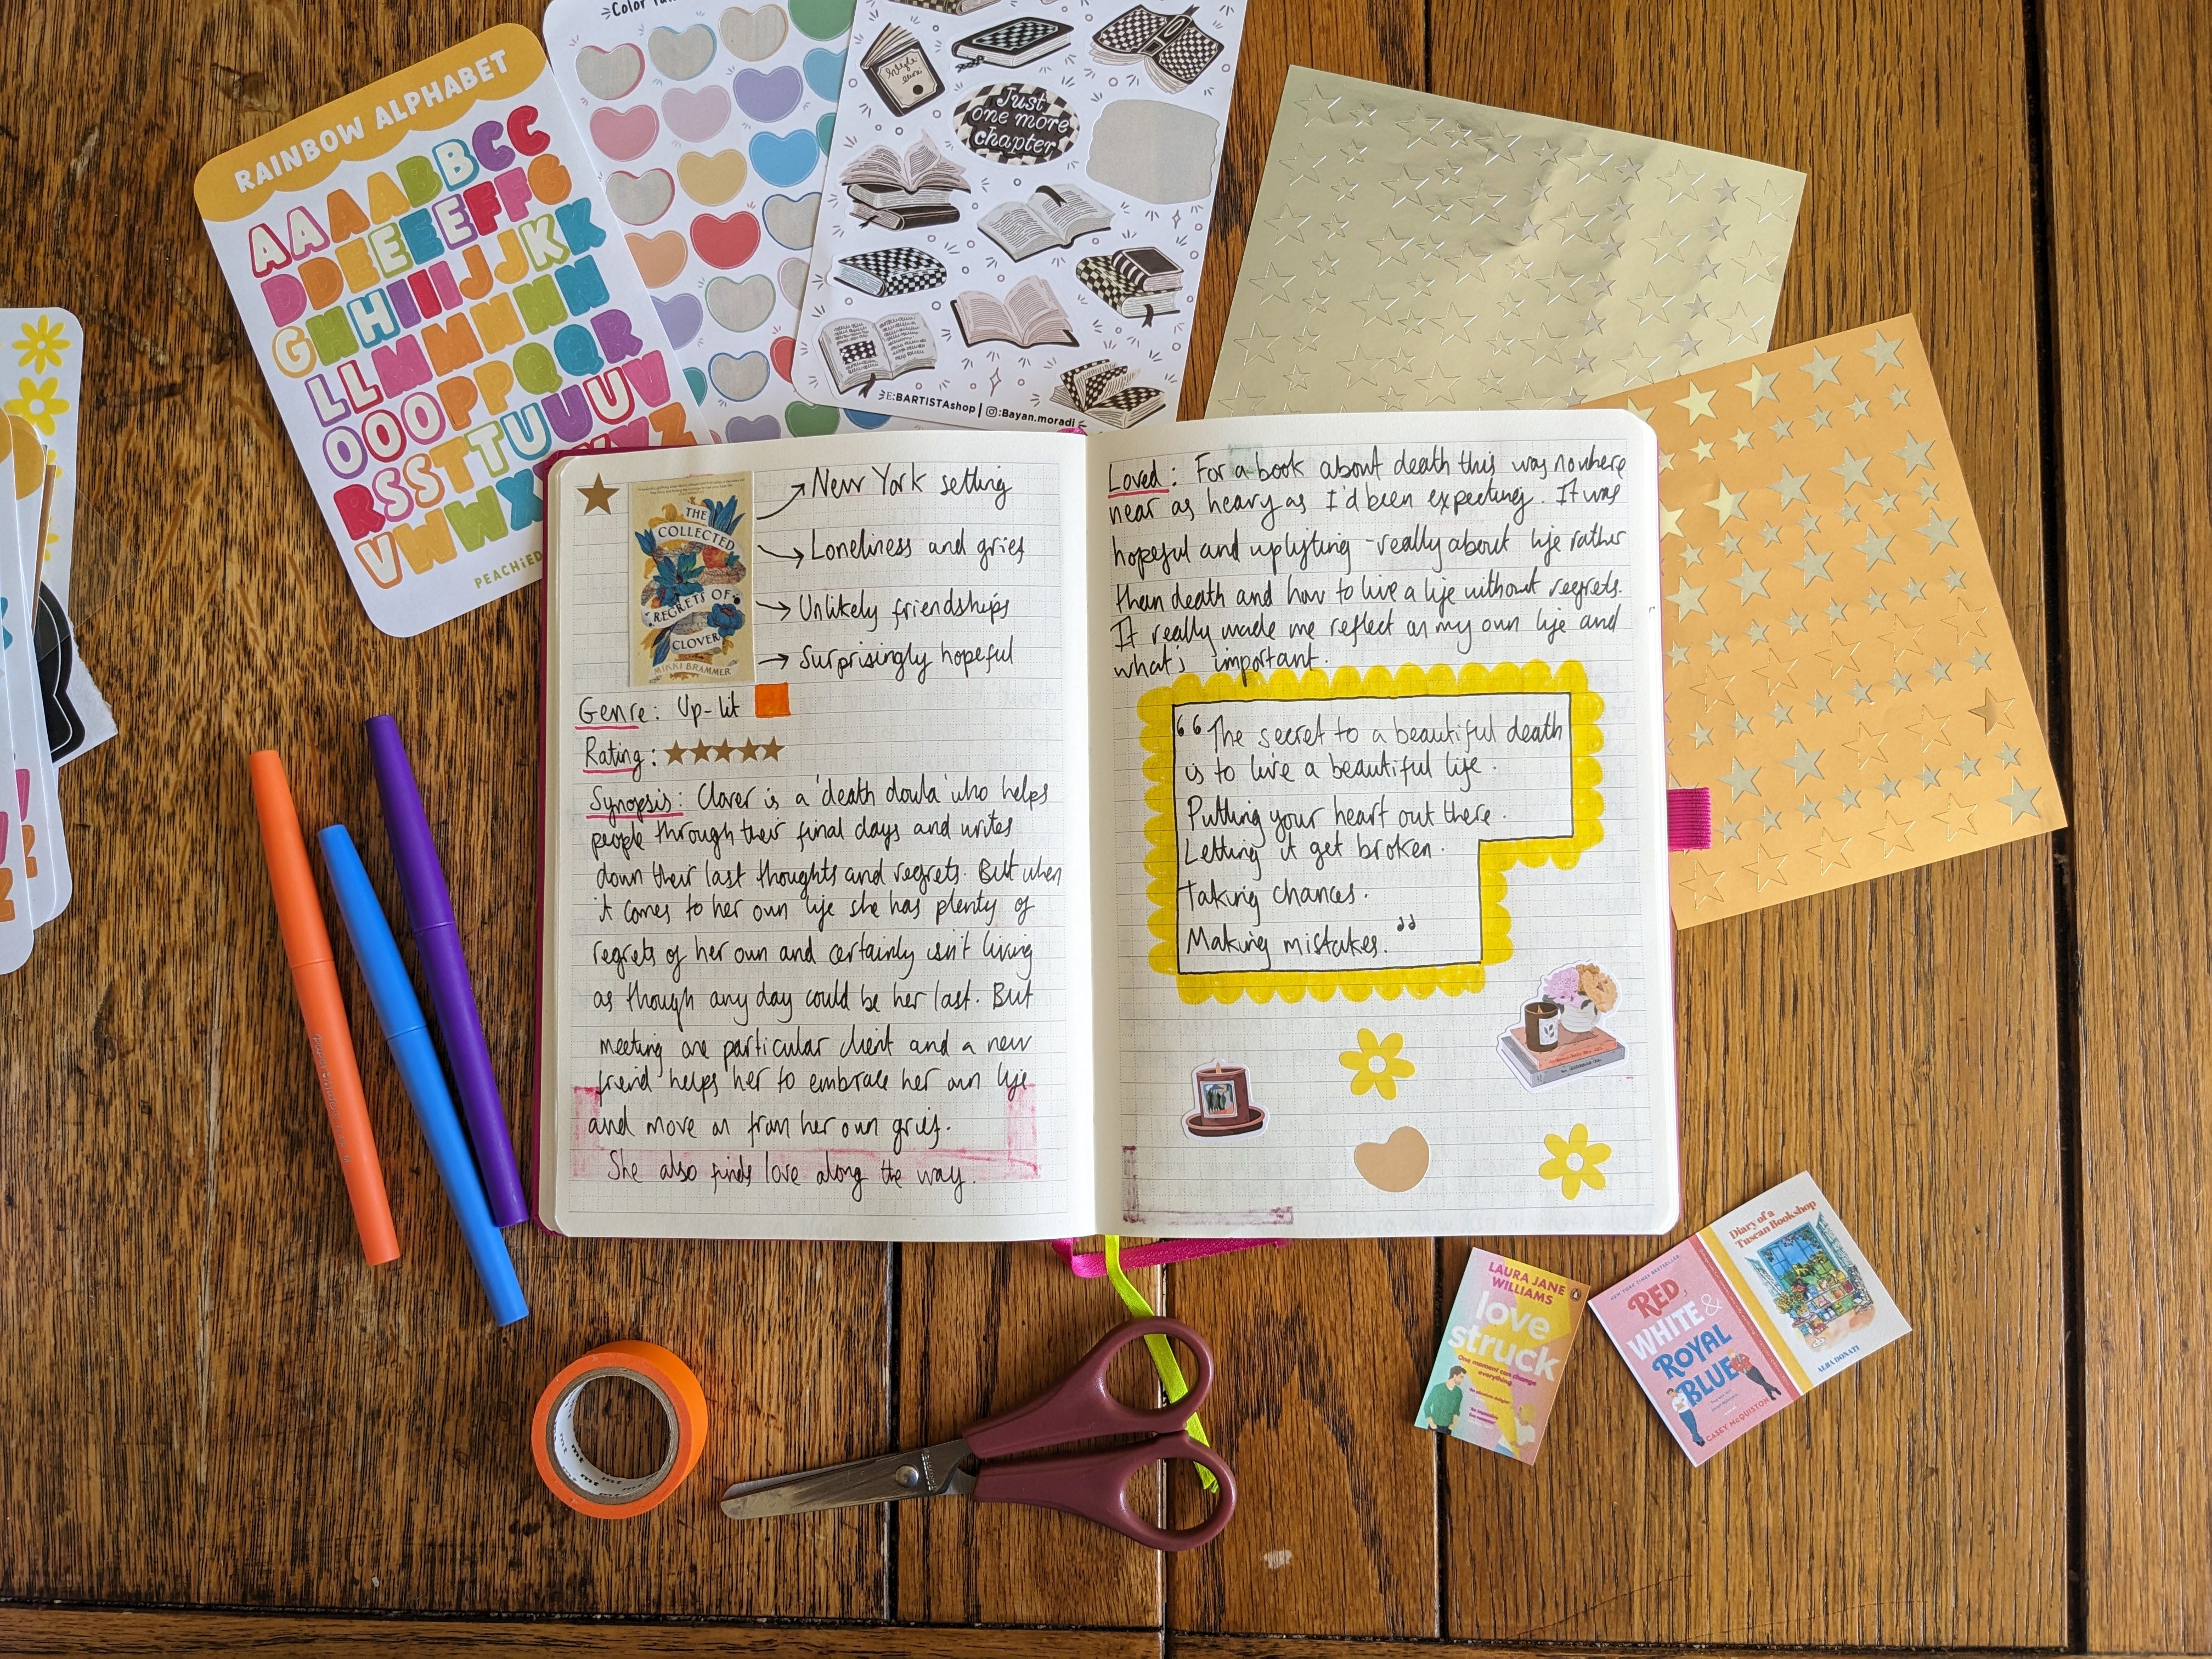 Color
RAINBOW ALPHABET
AAAABBCC
DDEEEEFFG
GHHIIIJJKK
LLMMMNNN
OOOPPQQR
RSSTTUUUV
VWWX
PEACHiED
Style
Just
one more
chapter
E:BARTISTAshop | :Bayan.moradi
THE
COLLECTED
REGRETS OF
CLOVER
MIKKI BRAMMER
New York setting
Loneliness and grief
Unlikely friendships
Surprisingly hopeful
Genre: Up-lit
Rating:
Synopsis: Clover is a 'death doula' who helps
people through their final days and writes
down their last thoughts and regrets. But when
it comes to her own life she has plenty of
regrets of her own and certainly isn't living
as though any day could be her last. But
meeting one particular client and a new
friend helps her to embrace her own life
and move on from her own grief.
She also finds love along the way.
Loved: For a book about death this was nowhere
near as heavy as I'd been expecting. It was
hopeful and uplifting - really about life rather
than death and how to live a life without regrets.
It really made me reflect on my own life and
what's important.
"The secret to a beautiful death
is to live a beautiful life.
Putting your heart out there.
Letting it get broken.
Taking chances.
Making mistakes."
mt mt
LAURA JANE
WILLIAMS
love
struck
One moment can change
everything
NEW YORK TIMES BESTSELLER
RED,
WHITE &
ROYAL
BLUE
CASEY McQUISTON
Diary of a
Tuscan Bookshop
ALBA DONATI